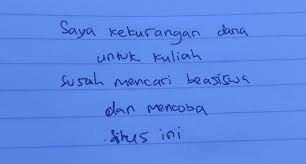 Saya kekurangan dana
untuk kuliah
susah mencari beasiswa
dan mencoba
situs ini